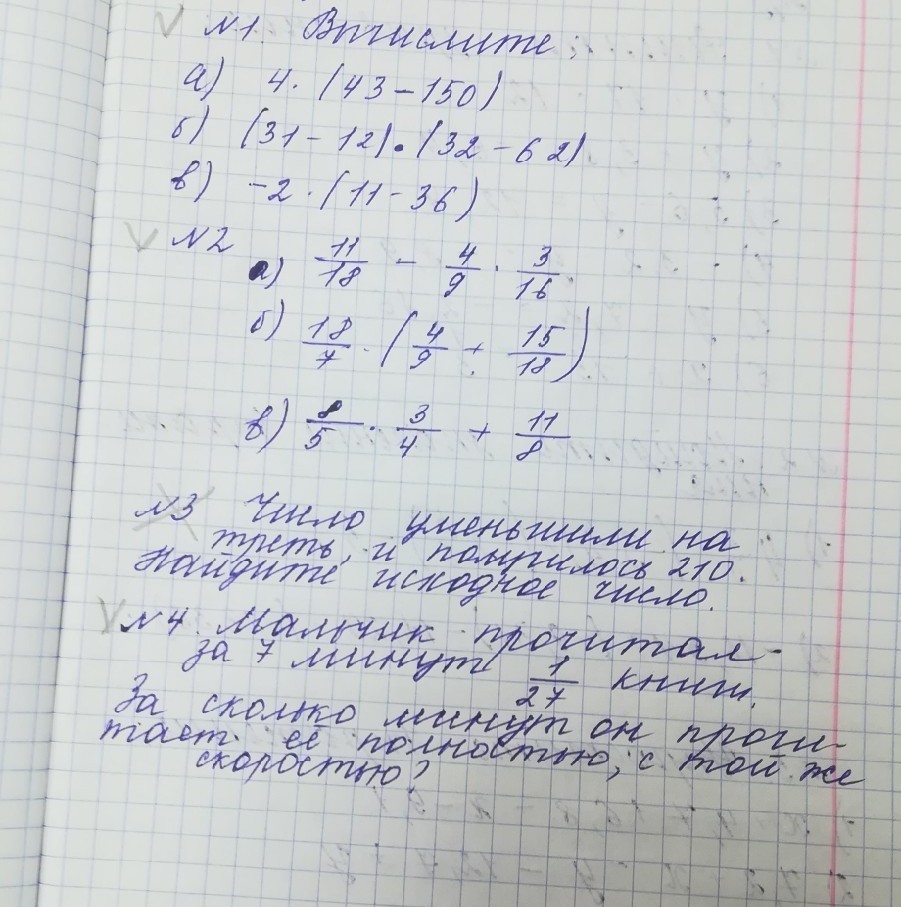 №1. Вычислите:
а) 4 · (43 - 150)
б) (31 - 12) · (32 - 62)
в) -2 · (11 - 36)
№2
а) 11/18 - 4/9 · 3/16
б) 18/7 · (4/9 + 15/18)
в) 8/5 · 3/4 + 11/8
№3 Число уменьшили на
треть, и получилось 210.
Найдите исходное число.
№4. Мальчик прочитал
за 7 минут 1/27 книги.
За сколько минут он прочи-
тает её полностью, с той же
скоростью?